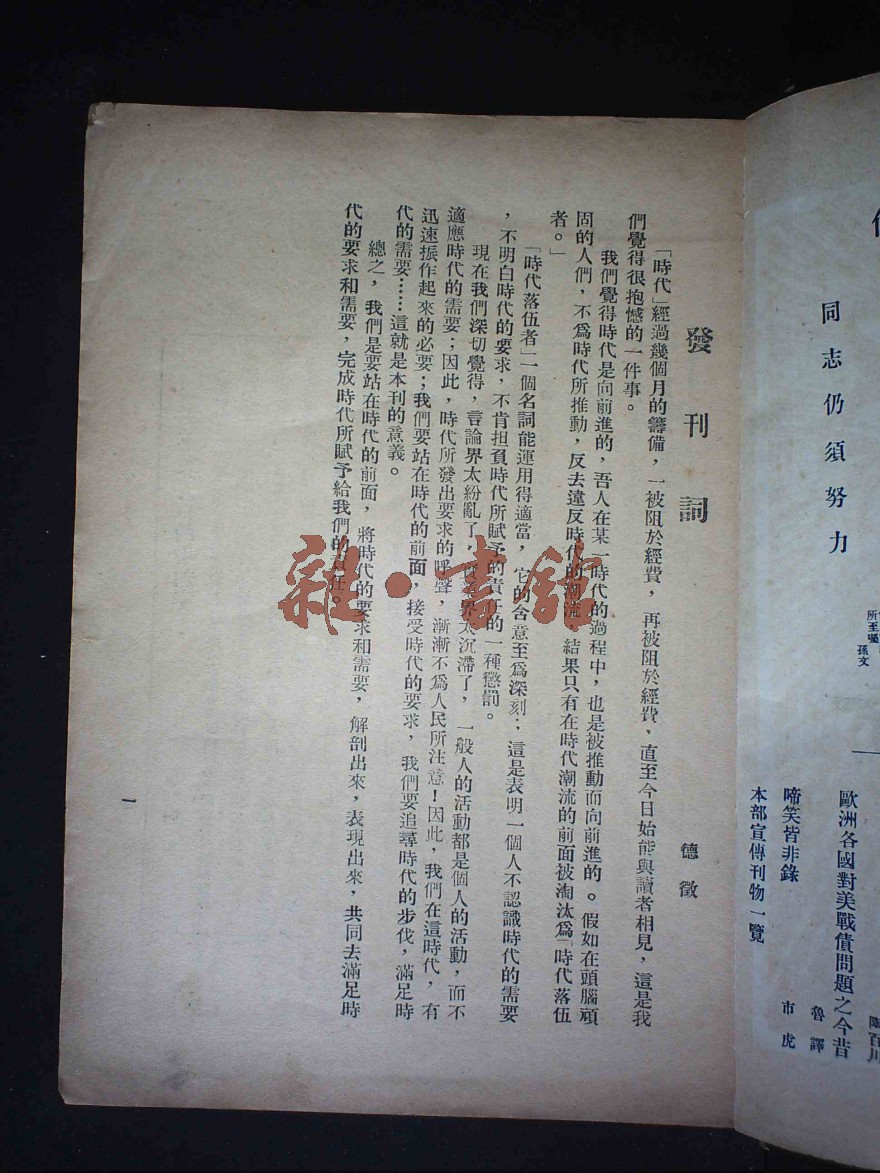 同志仍須努力
孫文
歐洲各國對美戰債問題之今昔
百川
啼笑皆非錄
魯譯
本部宣傳刊物一覽
市虎
發刊詞
德徵
「時代」經過幾個月的籌備，一被阻於經費，再被阻於經費，直至今日始能與讀者相見，這是我
們覺得很抱憾的一件事。
我們覺得時代是向前進的，吾人在某一時代的過程中，也是被推動而向前進的。假如在頭腦頑
固的人們，不爲時代所推動，反去違反時代的潮流，結果只有在時代潮流的前面被淘汰爲「時代落伍
者。」
「時代落伍者」一個名詞能運用得適當，它的含意至爲深刻；這是表明一個人不認識時代的需要
，不明白時代的要求，不肯担負時代所賦予的責任的一種懲罰。
現在我們深切覺得，言論界太紛亂了，界太沉滯了，一般人的活動都是個人的活動，而不
適應時代的需要；因此，時代所發出要求的呼聲，漸漸不爲人民所注意！因此，我們在這時代，有
迅速振作起來的必要；我們要站在時代的前面，接受時代的要求，我們要追尋時代的步伐，滿足時
代的需要……這就是本刊的意義。
總之，我們是要站在時代的前面，將時代的要求和需要，解剖出來，表現出來，共同去滿足時
代的要求和需要，完成時代所賦予給我們的責任。
一
雜·書館